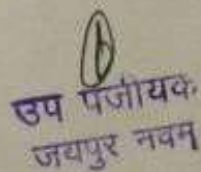 उप पंजीयक
जयपुर नवम